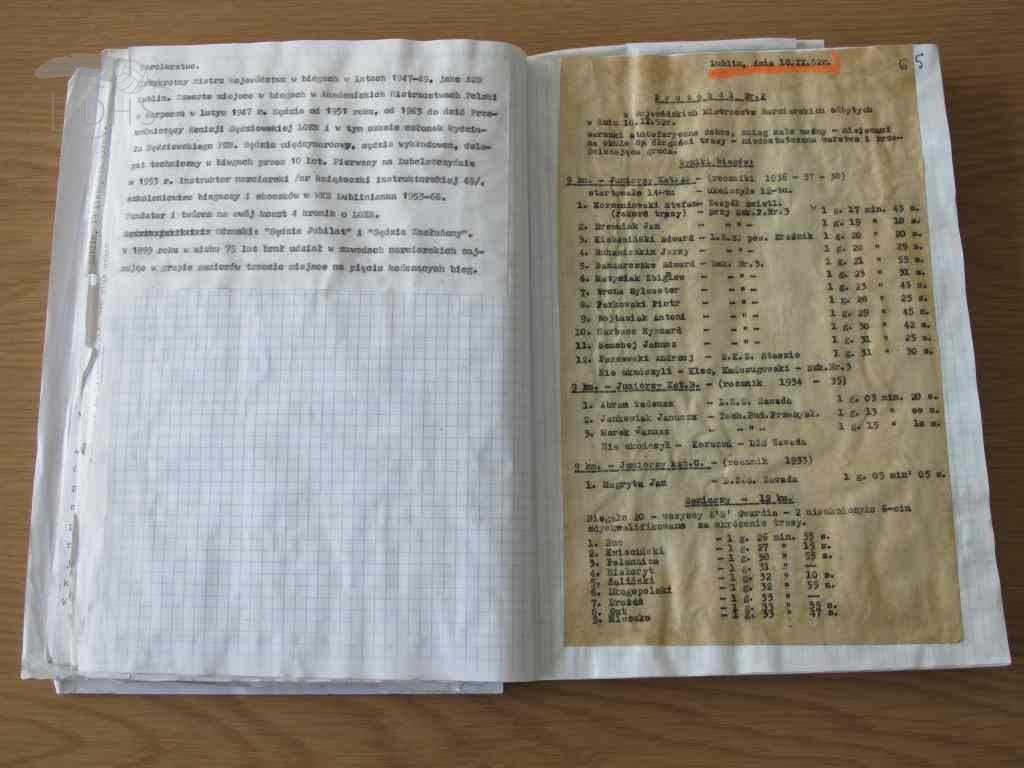 LDH
Narciarstwo.
Trzykrotny mistrz województwa w biegach w latach 1947-49, jako AZS
Lublin. Czwarte miejsce w biegach w Akademickich Mistrzostwach Polski
w Karpaczu w lutym 1947 r. Sędzia od 1951 roku, od 1963 do dziś Prze-
wodniczący Komisji Sędziowskiej LOZN i w tym czasie członek Wydzia-
łu Sędziowskiego PZN. Sędzia międzynarodowy, sędzia wykładowca, dele-
gat techniczny w biegach przez 10 lat. Pierwszy na Lubelszczyźnie
w 1953 r. instruktor narciarski /nr książeczki instruktorskiej 49/,
szkoleniowiec biegaczy i skoczków w WKS Lublinianka 1955-60.
Fundator i twórca na swój koszt 4 kronik o LOZN.
Odznaki: "Sędzia Jubilat" i "Sędzia Zasłużony".
W 1999 roku w wieku 75 lat brał udział w zawodach narciarskich zaj-
mując w grupie seniorów trzecie miejsce na pięciu kończących bieg.
65
Lublin, dnia 18.II.52r.
Protokół Nr.2
z Wojewódzkich Mistrzostw Narciarskich odbytych
w dniu 18.II.52r.
Warunki atmosferyczne dobre, śnieg mało nośny - miejscami
na około 8% długości trasy - niedostateczna warstwa i prze-
świecająca gruda.
Wyniki biegów:
9 km. - Juniorzy Kat.A. - (roczniki 1936 - 37 - 38)
startowało 14-tu - ukończyło 12-tu.
1. Korzeniowski Stefan- Zespół Świetl.
(rekord trasy) - przy Szk.P.Nr.3 1 g. 17 min. 45 s.
2. Bremniak Jan - " - 1 g. 19 " 10 s.
3. Kiebasiński Edward - L.Z.S. pow. Kraśnik 1 g. 20 " 00 s.
4. Jerzy - " - 1 g. 20 " 29 s.
5. Bandaroszko Edward - Szk. Nr.3. 1 g. 21 " 55 s.
6. Matysiak Zbigiew - " - 1 g. 23 " 31 s.
7. Wrona Sylwester - " - 1 g. 23 " 43 s.
8. Parkowski Piotr - " - 1 g. 26 " 25 s.
9. Wojtasiak Antoni - " - 1 g. 29 " 45 s.
10. Garbacz Ryszard - " - 1 g. 30 " 42 s.
11. Janusz - " - 1 g. 31 " 25 s.
12. Paszewski Andrzej - S.K.S. Staszic 1 g. 31 " 30 s.
Nie ukończyli - Klec, Kańczugowski - Szk.Nr.3
9 km. - Juniorzy Kat.B. - (rocznik 1934 - 35)
1. Abram Tadeusz - L.Z.S. Zawada 1 g. 03 min. 20 s.
2. Jankowiak Janusz - Tech.Bud.Przemysł. 1 g. 13 " oo s.
3. Marek Janusz - " - 1 g. 15 " 1o s.
Nie ukończył - Korszeń - LZS Zawada
9 km. - Juniorzy Kat.C. - (rocznik 1933)
1. Magryta Jan - L.Z.S. Zawada 1 g. 05 min' 05 s.
Seniorzy - 12 km.
Biegało 20 - wszyscy Z'S' Gwardia - 2 nieukończyło 6-ciu
zdyskwalifikowano za skrócenie trasy.
1. Duc - 1 g. 26 min. 35 s.
2. Kwieciński - 1 g. 27 " 15 s.
3. Polannica - 1 g. 30 " 55 s.
4. Białoryt - 1 g. 31 " —
5. Żaliński - 1 g. 32 " 10 s.
6. Długopolski - 1 g. 32 " 55 s.
7. Drożdż - 1 g. 33 " —
8. Gut - 1 g. 33 " 35 s.
9. Mleczko - 1 g. 33 " 47 s.